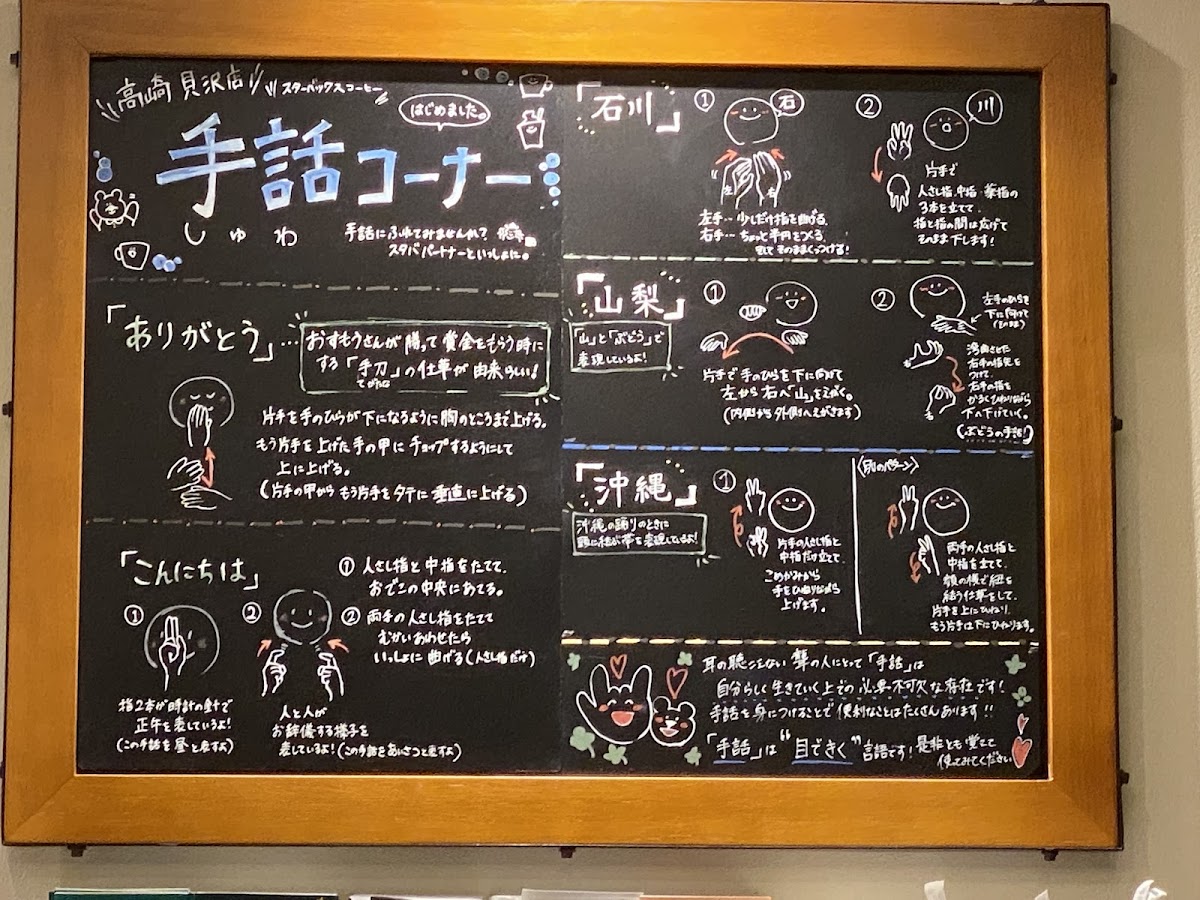 高崎貝沢店
スターバックスコーヒー
はじめました。
手話コーナー
しゅわ
手話にふれてみませんか?
スタバパートナーといっしょに。
「ありがとう」…
おすもうさんが勝って賞金をもらう時に
する「手刀」の仕草が由来らしい!
てがたな
片手を手のひらが下になるように胸のところまで上げる。
もう片手を上げた手の甲にチョップするようにして
上に上げる。
(片手の甲からもう片手をタテに垂直に上げる)
「こんにちは」
①
②
① 人さし指と中指をたてて、
おでこの中央にあてる。
② 両手の人さし指をたてて
むかいあわせたら
いっしょに曲げる(人さし指だけ)
指2本が時計の針で
正午を表しているよ!
(この手話を昼と表すよ)
人と人が
お辞儀する様子を
表しているよ!(この手話をあいさつと表すよ)
「石川」
①
石
左
右
左手…少しだけ指を曲げる。
右手…ちょっと半円をつくる
そして そのままくっつける!
②
川
片手で
人さし指、中指、薬指の
3本を立てて、
指と指の間は広げて
そのまま下します!
「山梨」
「山」と「ぶどう」で
表現しているよ!
①
片手で手のひらを下に向けて
左から右へ「山」をえがく。
(内側から外側へえがきます)
②
左手のひらを
下に向けて
湾曲させた
右手の指先を
つけて、
右手の指を
かるくひねりながら
下へ下げていく。
(ぶどうの手話!)
「沖縄」
沖縄の踊りのときに
頭に結ぶ帯を表現しているよ!
①
片手の人さし指と
中指だけ立てて、
こめかみから
手をひねりながら
上げます。
〈別のパターン〉
両手の人さし指と
中指を立て、
頭の横で紐を
結う仕草をして、
片手を上にひねり、
もう片手は下にひねります。
耳の聴こえない聾の人にとって「手話」は
自分らしく生きていく上での必要不可欠な存在です!
手話を身につけることで便利なことはたくさんあります!!
「手話」は"目できく"言語です!是非とも覚えて
使ってみてください